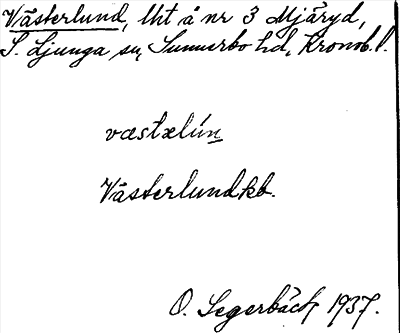 Västerlund, lht å nr 3 Mjäryd,
S. Ljunga sn, Sunnerbo hd, Kronob. l.
væstælún
Västerlund kb.
O. Segerbäck 1937.